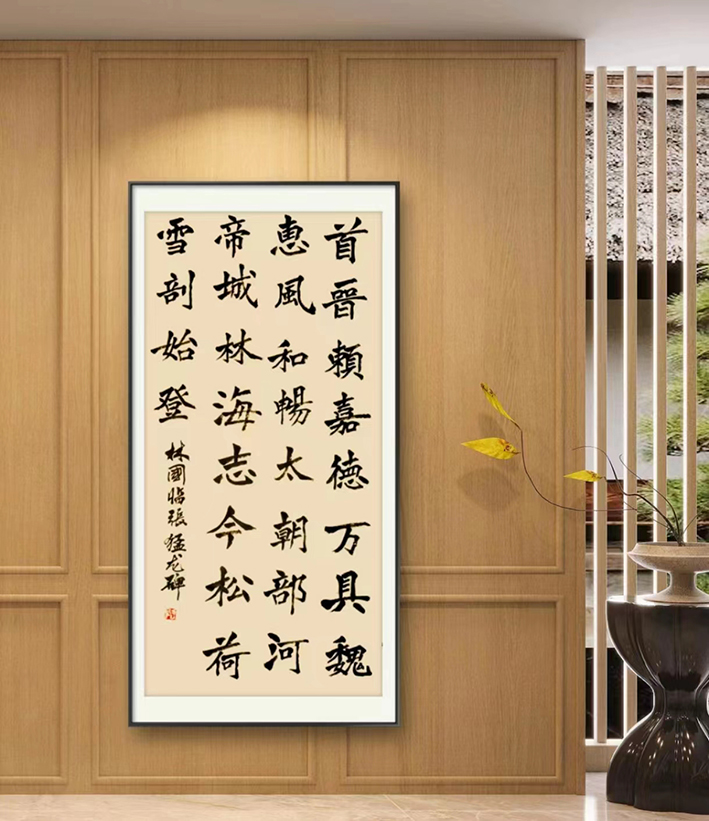 首晉賴嘉德万具魏
惠風和暢太朝部河
帝城林海志今松荷
雪剖始登
林國臨張猛龙碑